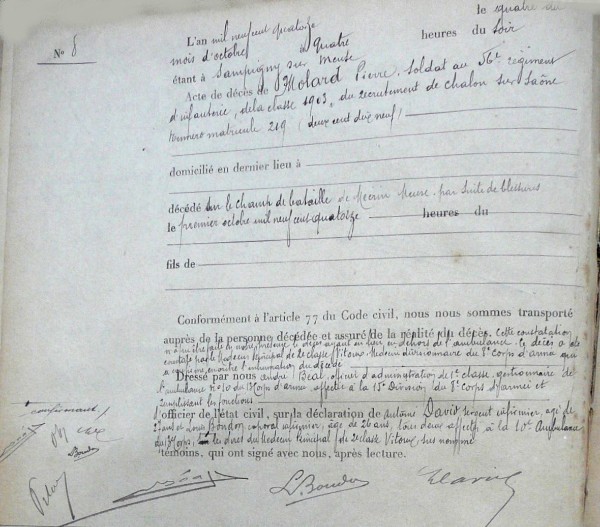 le quatre du
N° 8
L'an mil neuf cent quatorze
mois d'octobre à quatre heures du soir
étant à Sampigny sur Meuse
Acte de décès de Molard Pierre, soldat au 56e régiment
d'infanterie, de la classe 1903, du recrutement de Chalon sur Saône
numéro matricule 219 (deux cent dix neuf)
domicilié en dernier lieu à
décédé sur le champ de bataille de Meuse par suite de blessures
le premier octobre mil neuf cent quatorze heures du
fils de
Conformément à l'article 77 du Code civil, nous nous sommes transporté
auprès de la personne décédée et assuré de la réalité du décès. Cette constatation
n'a pu être faite le décès ayant eu lieu en dehors de l'ambulance. Le décès a été
constaté par le Médecin principal de 2e classe Vitoux Médecin divisionnaire du 8e Corps d'armée qui
l'inhumation du décédé
Dressé par nous André Béal, officier d'administration de 1e classe, gestionnaire de
l'ambulance n° 10 du Corps d'armée, affectée à la 15e Division du 8e Corps d'armée et
remplissant les fonctions
d'officier de l'état civil, sur la déclaration de Antoine David sergent infirmier, âgé de
ans et Louis Boudon caporal infirmier, âgé de 26 ans, tous deux affectés à la 10e Ambulance
du Corps, et le dires du Médecin Principal de 2e classe Vitoux sus nommé
témoins, qui ont signé avec nous, après lecture.
L. Boudon